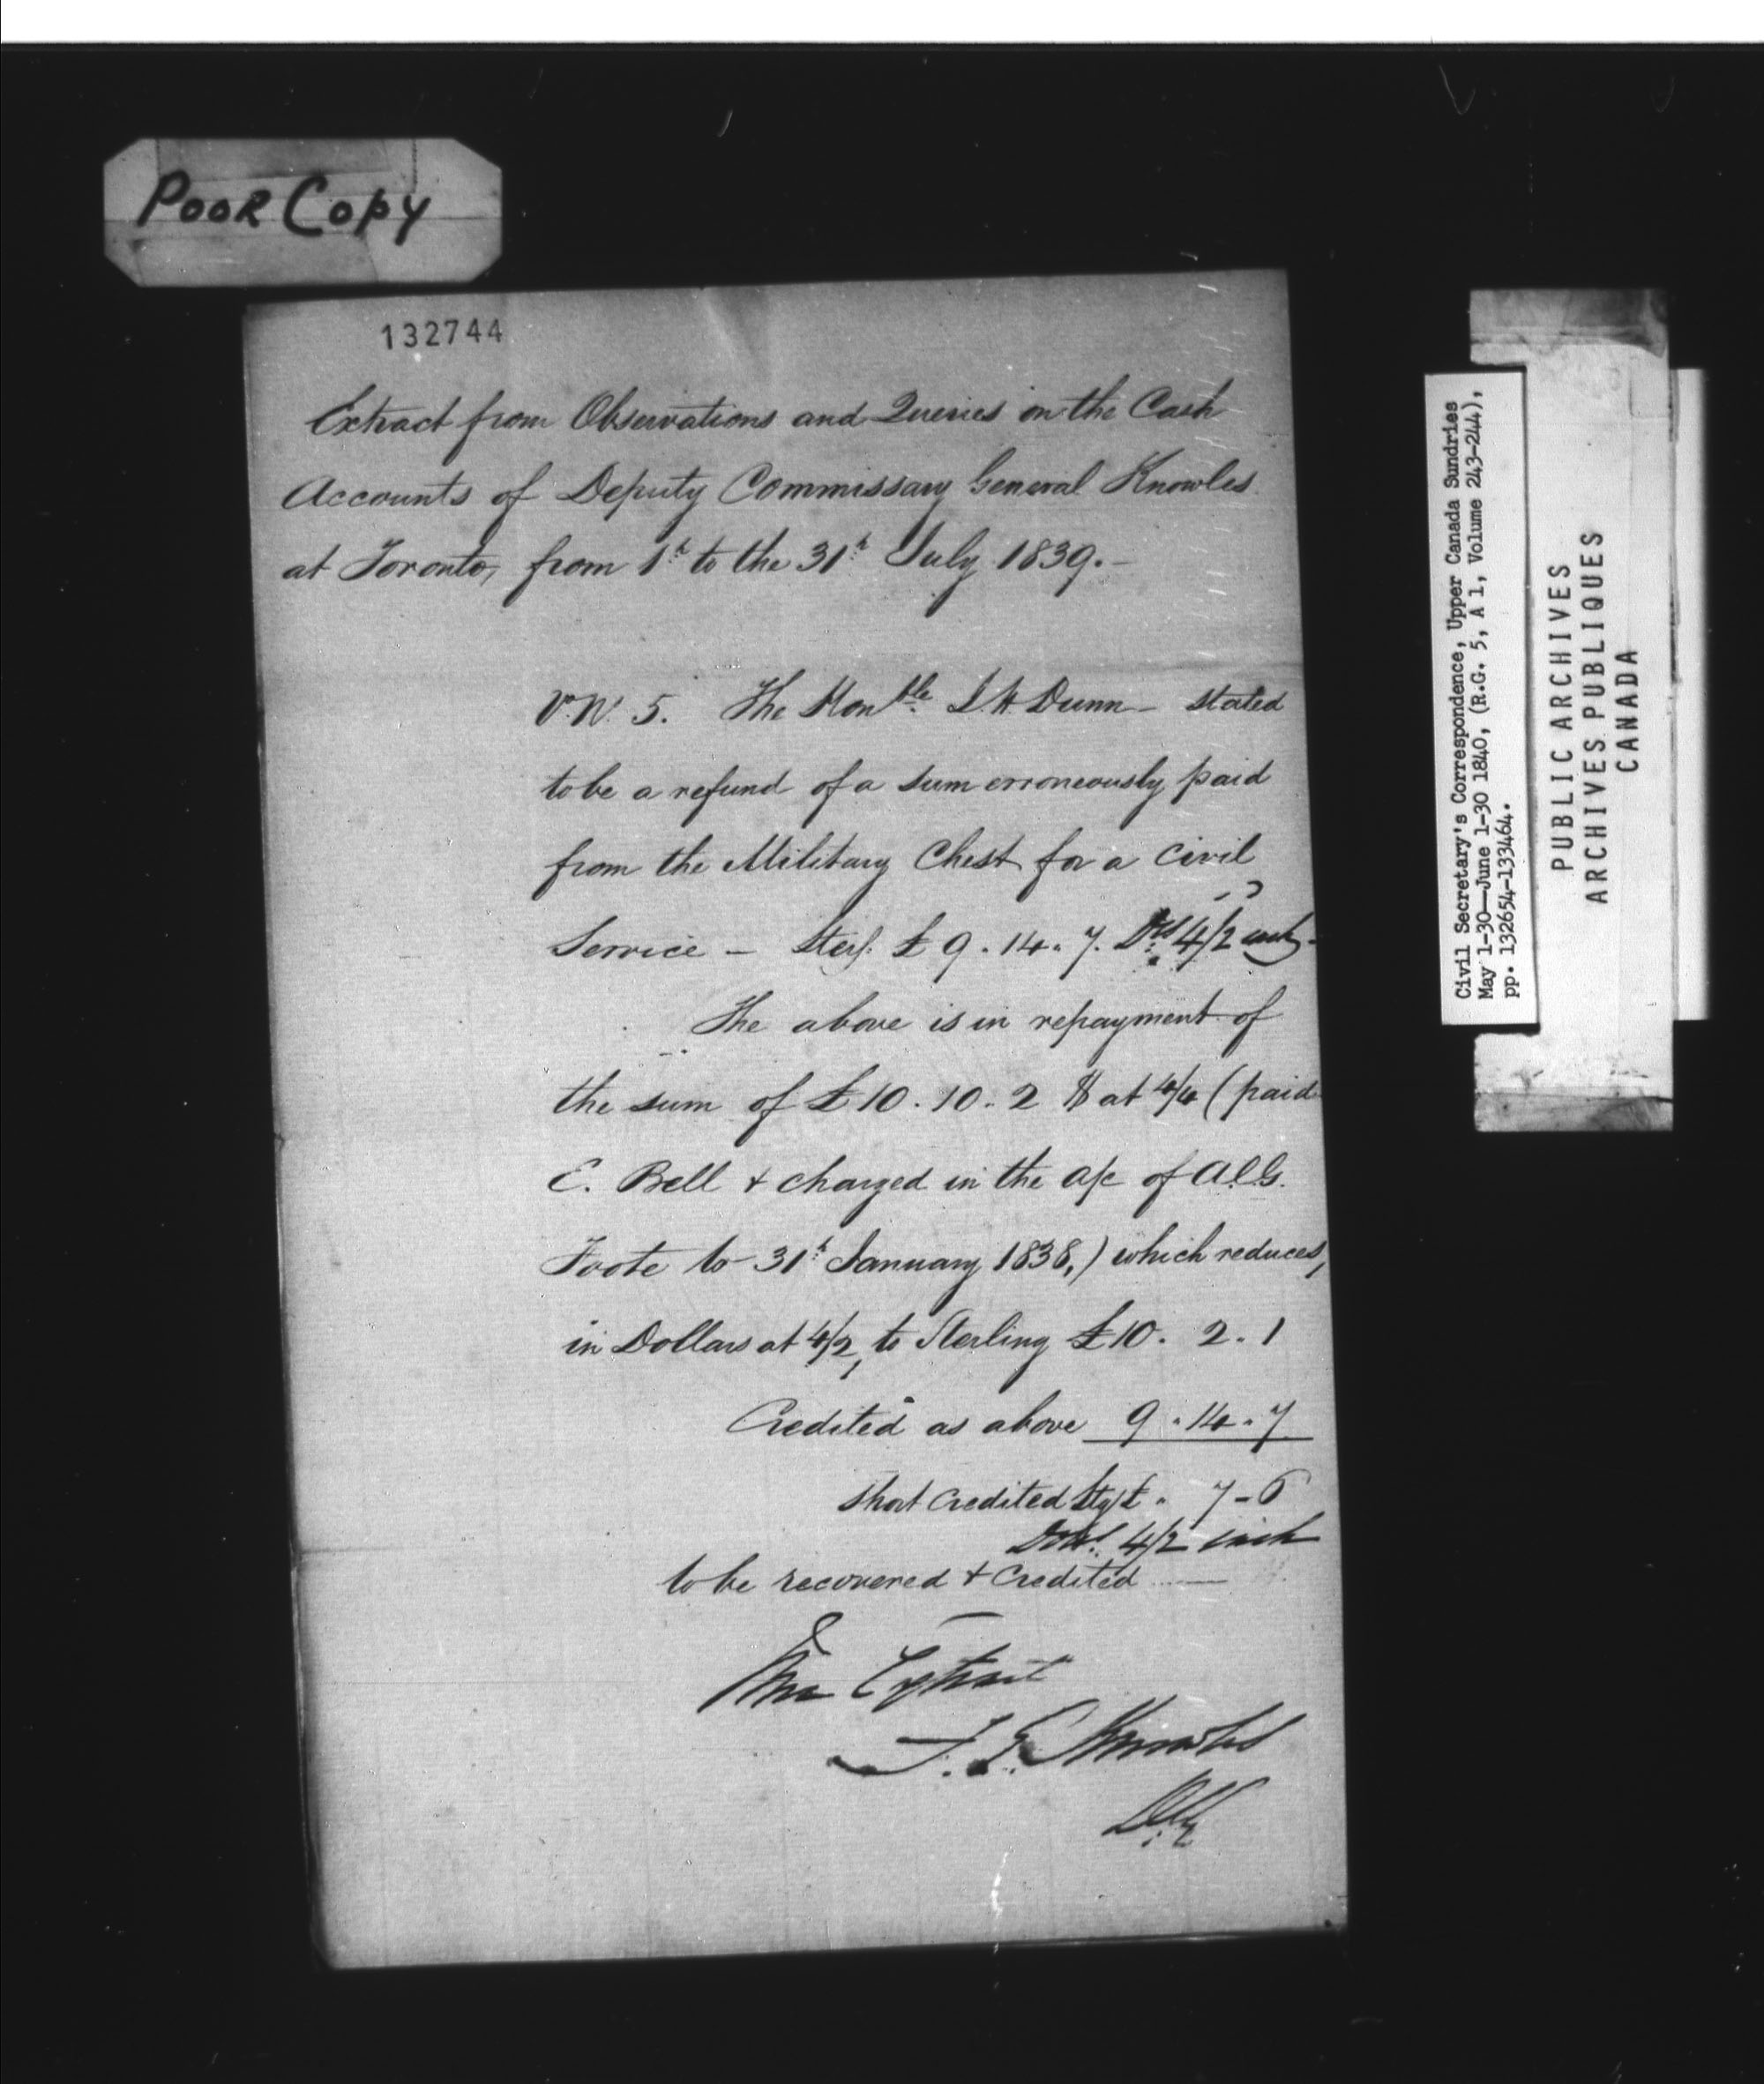 Poor Copy
132744
Extract from Observations and Queries on the Cash
Accounts of Deputy Commissary General Knowles
at Toronto, from 1st to the 31st July 1839.—
Vr. N. 5. The Honble. J. H. Dunn — stated
to be a refund of a sum erroneously paid
from the Military Chest for a Civil
Service — Sterl. £ 9. 14. 7. Drs 4/2 each
The above is in repayment of
the sum of £10. 10. 2 $ at 4/4 (paid
E. Bell + charged in the a/c of A.C.G.
Foote to 31st January 1838,) which reduces,
in Dollars at 4/2, to Sterling £10. 2. 1
Credited as above 9. 14. 7
Short Credited Stg £ " 7-6
Dolls. 4/2 each
to be recovered + Credited —
True Extract
J. E. Knowles
DCG
Civil Secretary's Correspondence, Upper Canada Sundries
May 1-30—June 1-30 1840, (R.G. 5, A 1, Volume 243-244),
pp. 132654-133464.
PUBLIC ARCHIVES
ARCHIVES PUBLIQUES
CANADA